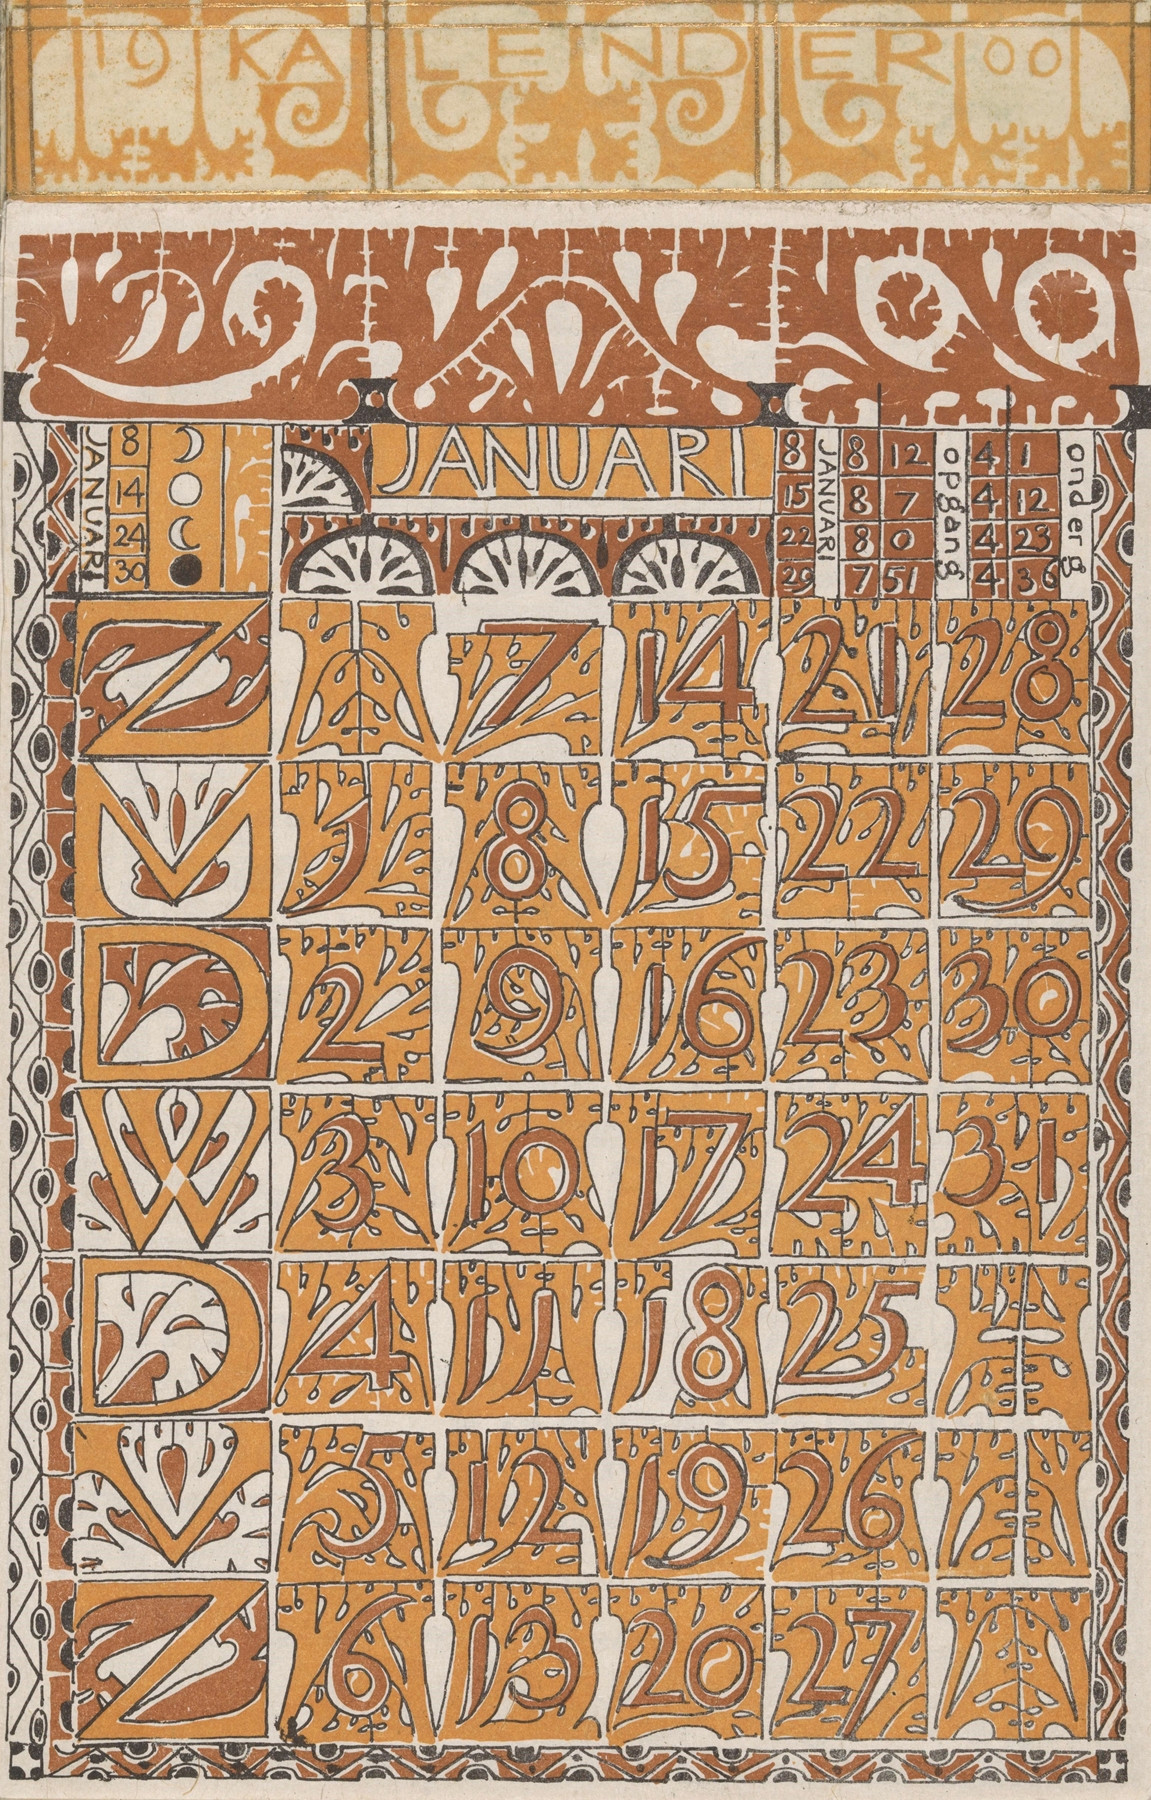 19 KALENDER 00
JANUARI
8
14
24
30
JANUARI
8 JANUARI 8 12 opgang 4 1 onderg
15 8 7 4 12
22 8 0 4 23
29 7 51 4 36
Z 7 14 21 28
M 1 8 15 22 29
D 2 9 16 23 30
W 3 10 17 24 31
D 4 11 18 25
V 5 12 19 26
Z 6 13 20 27